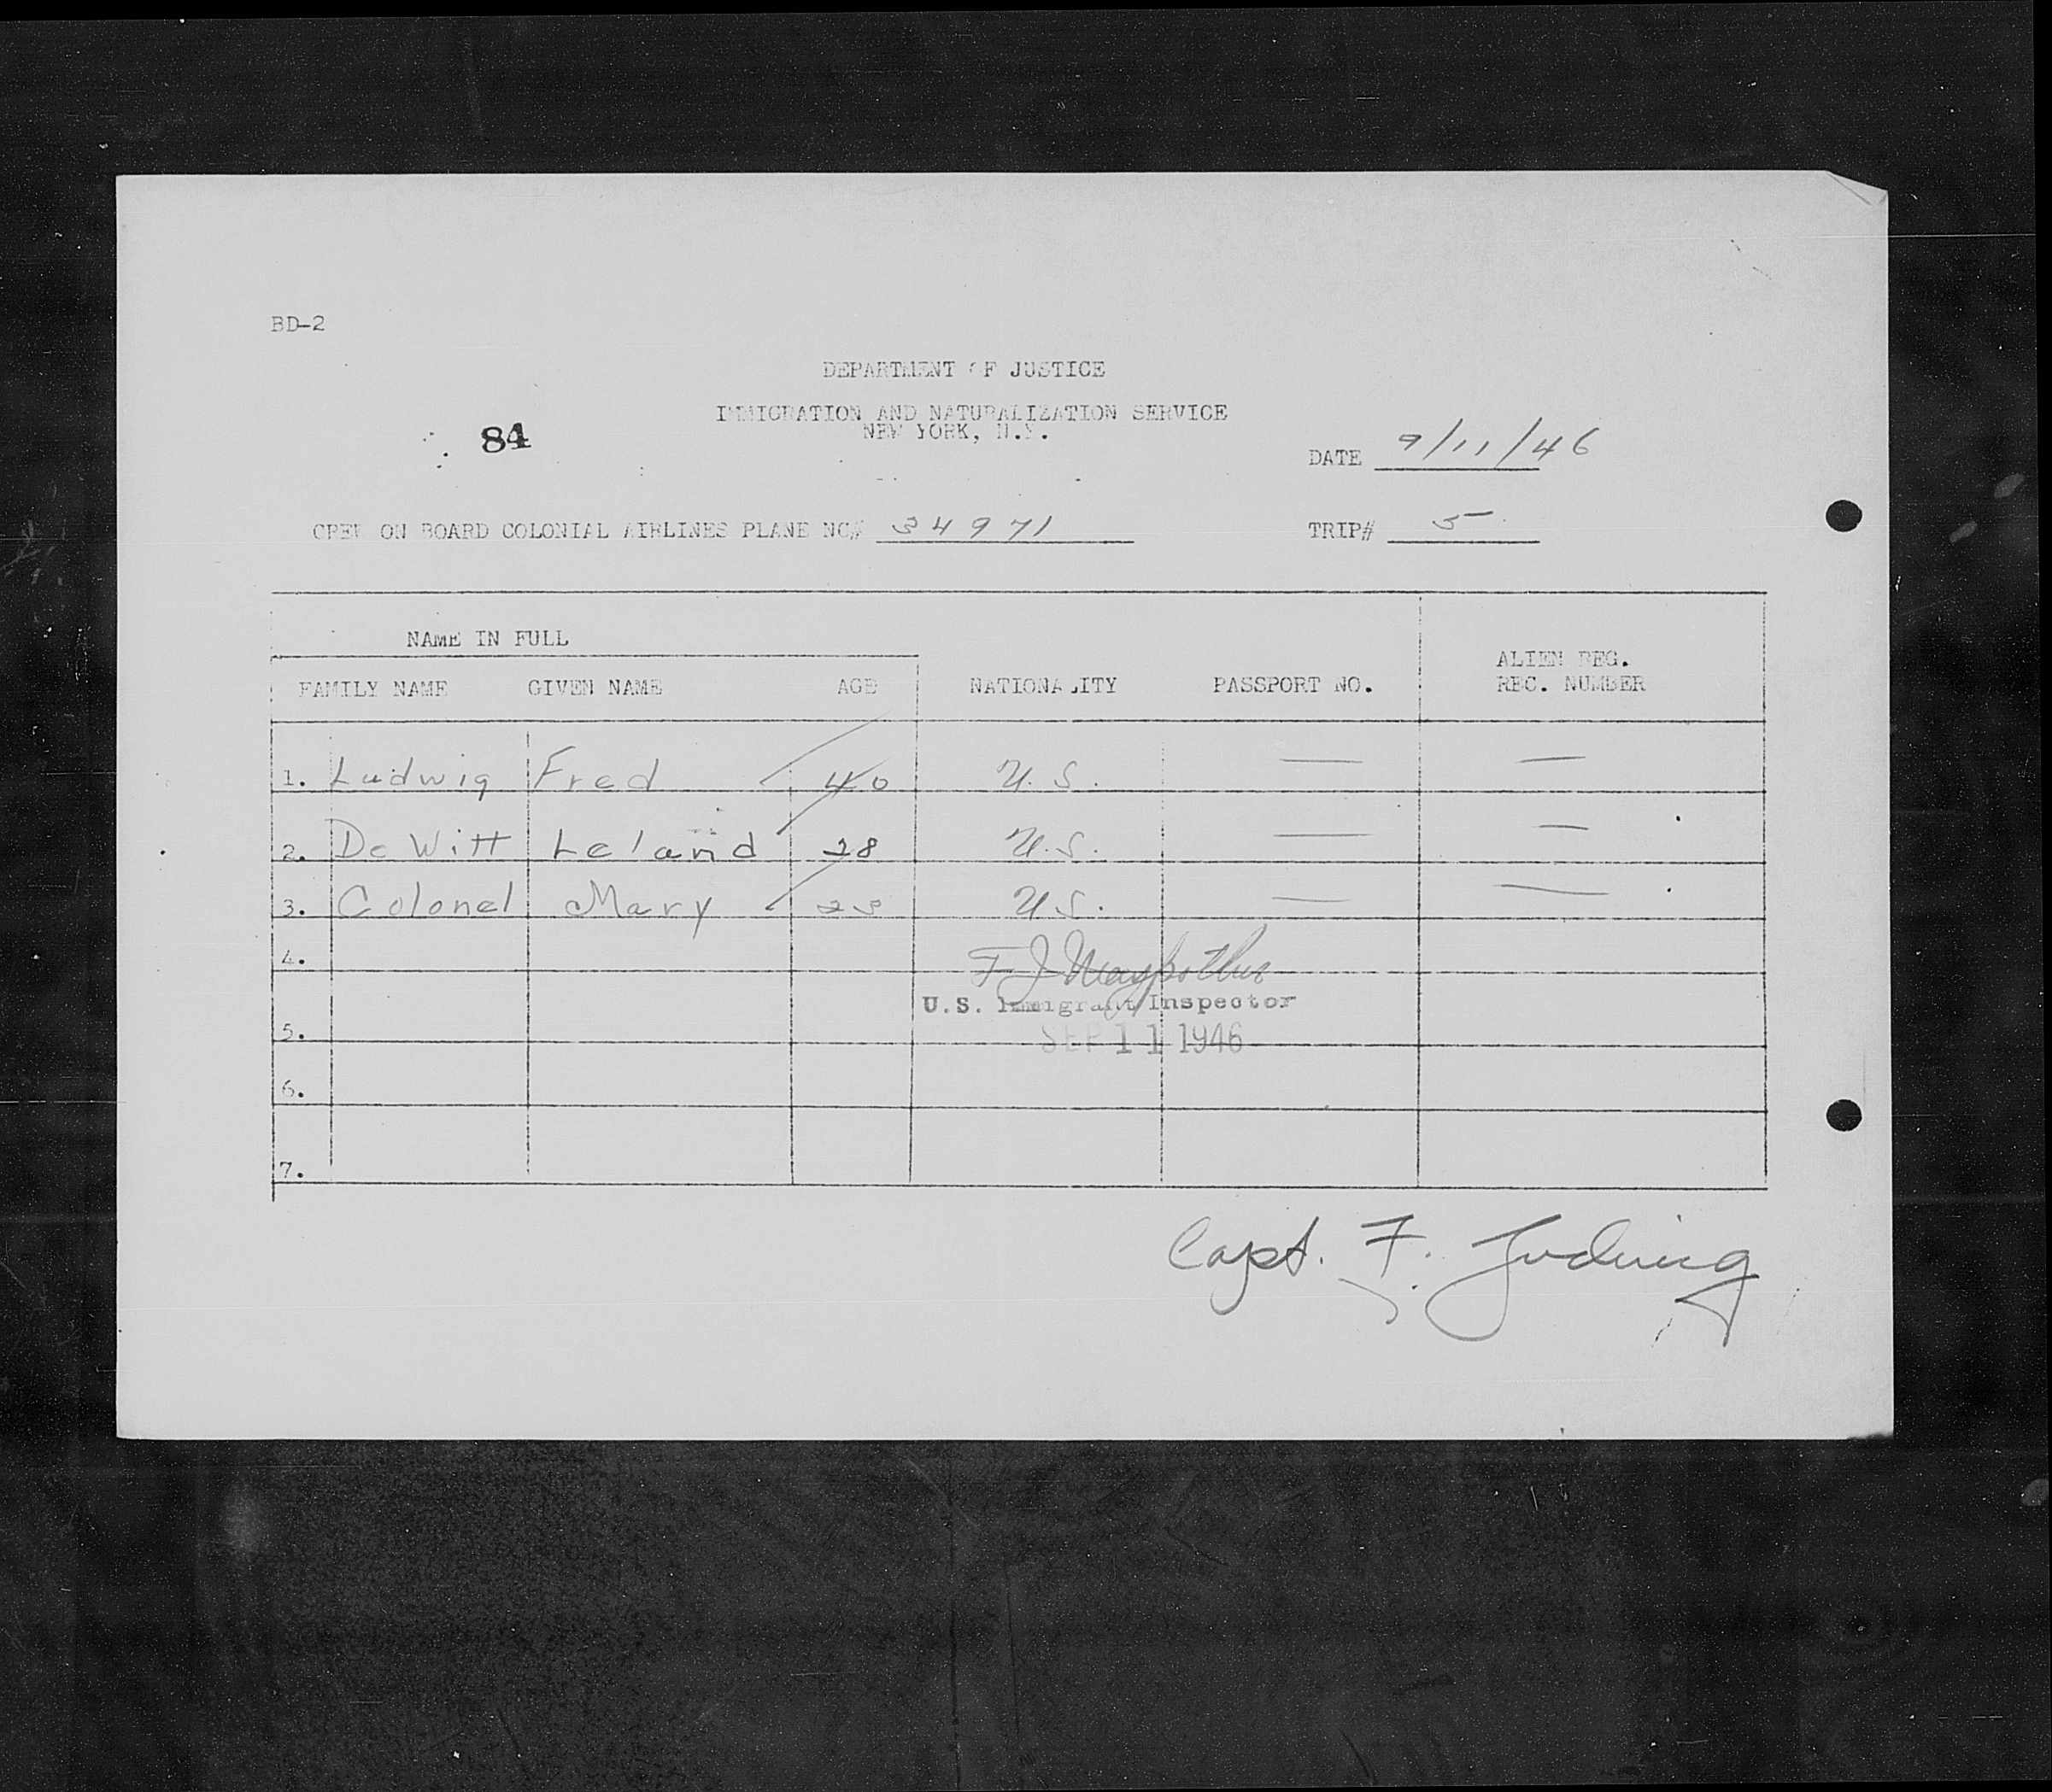 BD-2
DEPARTMENT OF JUSTICE
IMMIGRATION AND NATURALIZATION SERVICE
NEW YORK, N.Y.
84
DATE 9/11/46
CREW ON BOARD COLONIAL AIRLINES PLANE NO# 34971 TRIP# 5
NAME IN FULL
FAMILY NAME GIVEN NAME AGE NATIONALITY PASSPORT NO. ALIEN REG. REC. NUMBER
1. Ludwig Fred 40 U.S. — —
2. De Witt Leland 28 U.S. — —
3. Colonel Mary 23 U.S. — —
4. F J
U.S. Immigrant Inspector
5. SEP 11 1946
6.
7.
Capt. F. Ludwig